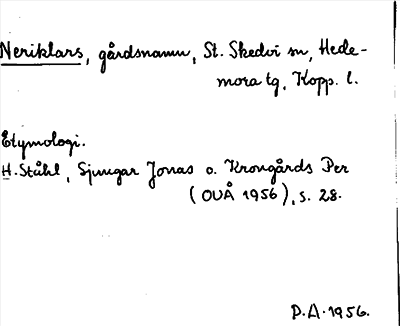 Neriklars, gårdsnamn, St. Skedvi sn, Hede-
mora tg, Kopp. l.
Etymologi.
H. Ståhl, Sjungar Jonas o. Krongårds Per
(OUÅ 1956), s. 28.
P.A. 1956.